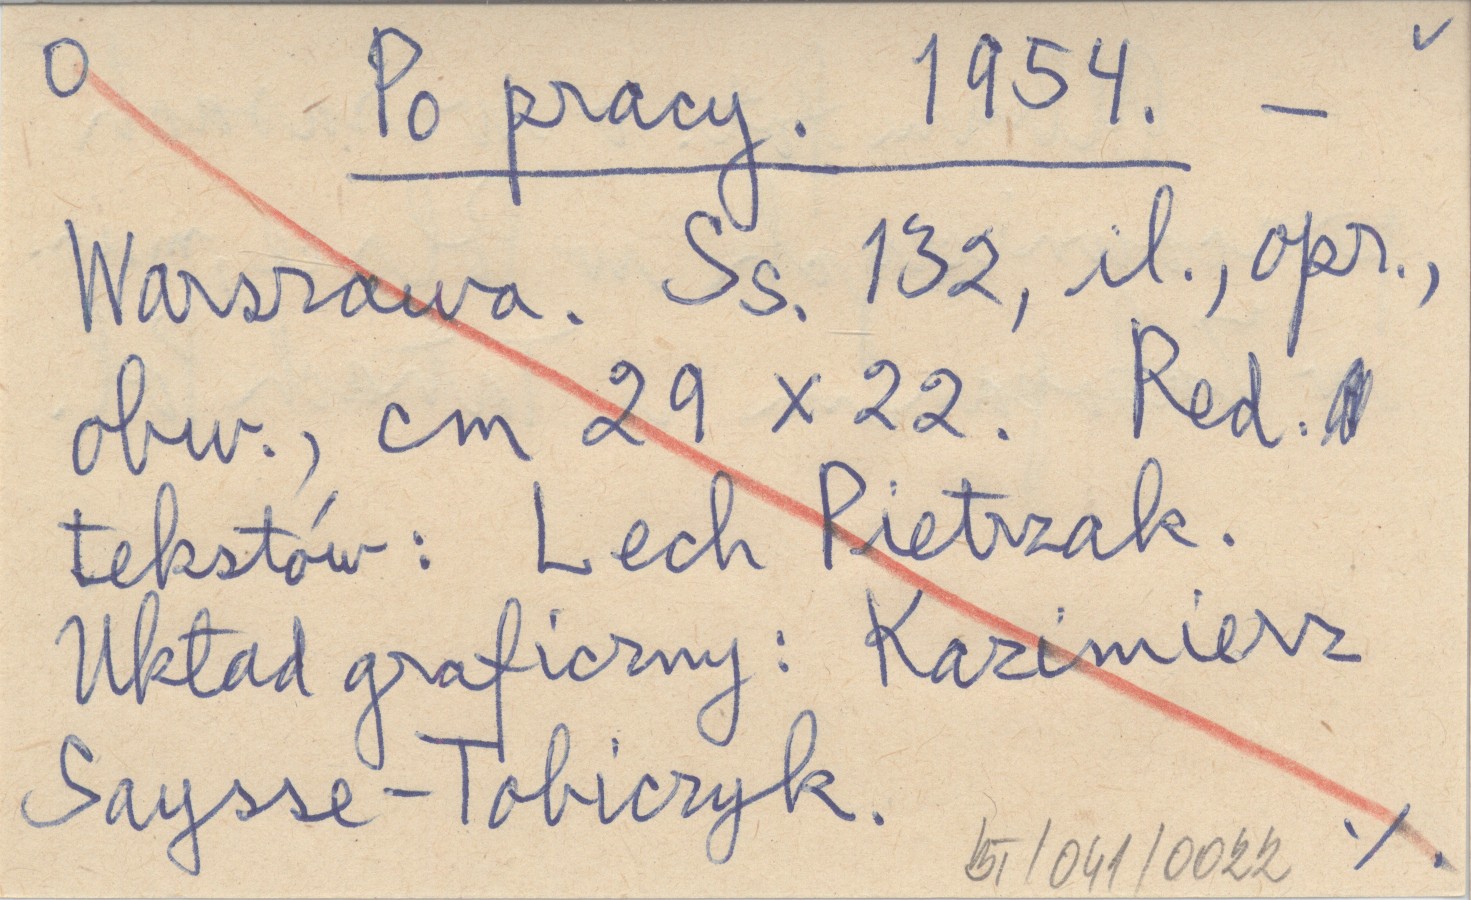 O Po pracy. 1954. —
Warszawa. Ss. 132, il., opr.,
obw., cm 29 x 22. Red.
tekstów: Lech Pietrzak.
Układ graficzny: Kazimierz
Saysse-Tobiczyk.
/041/0022 ./.